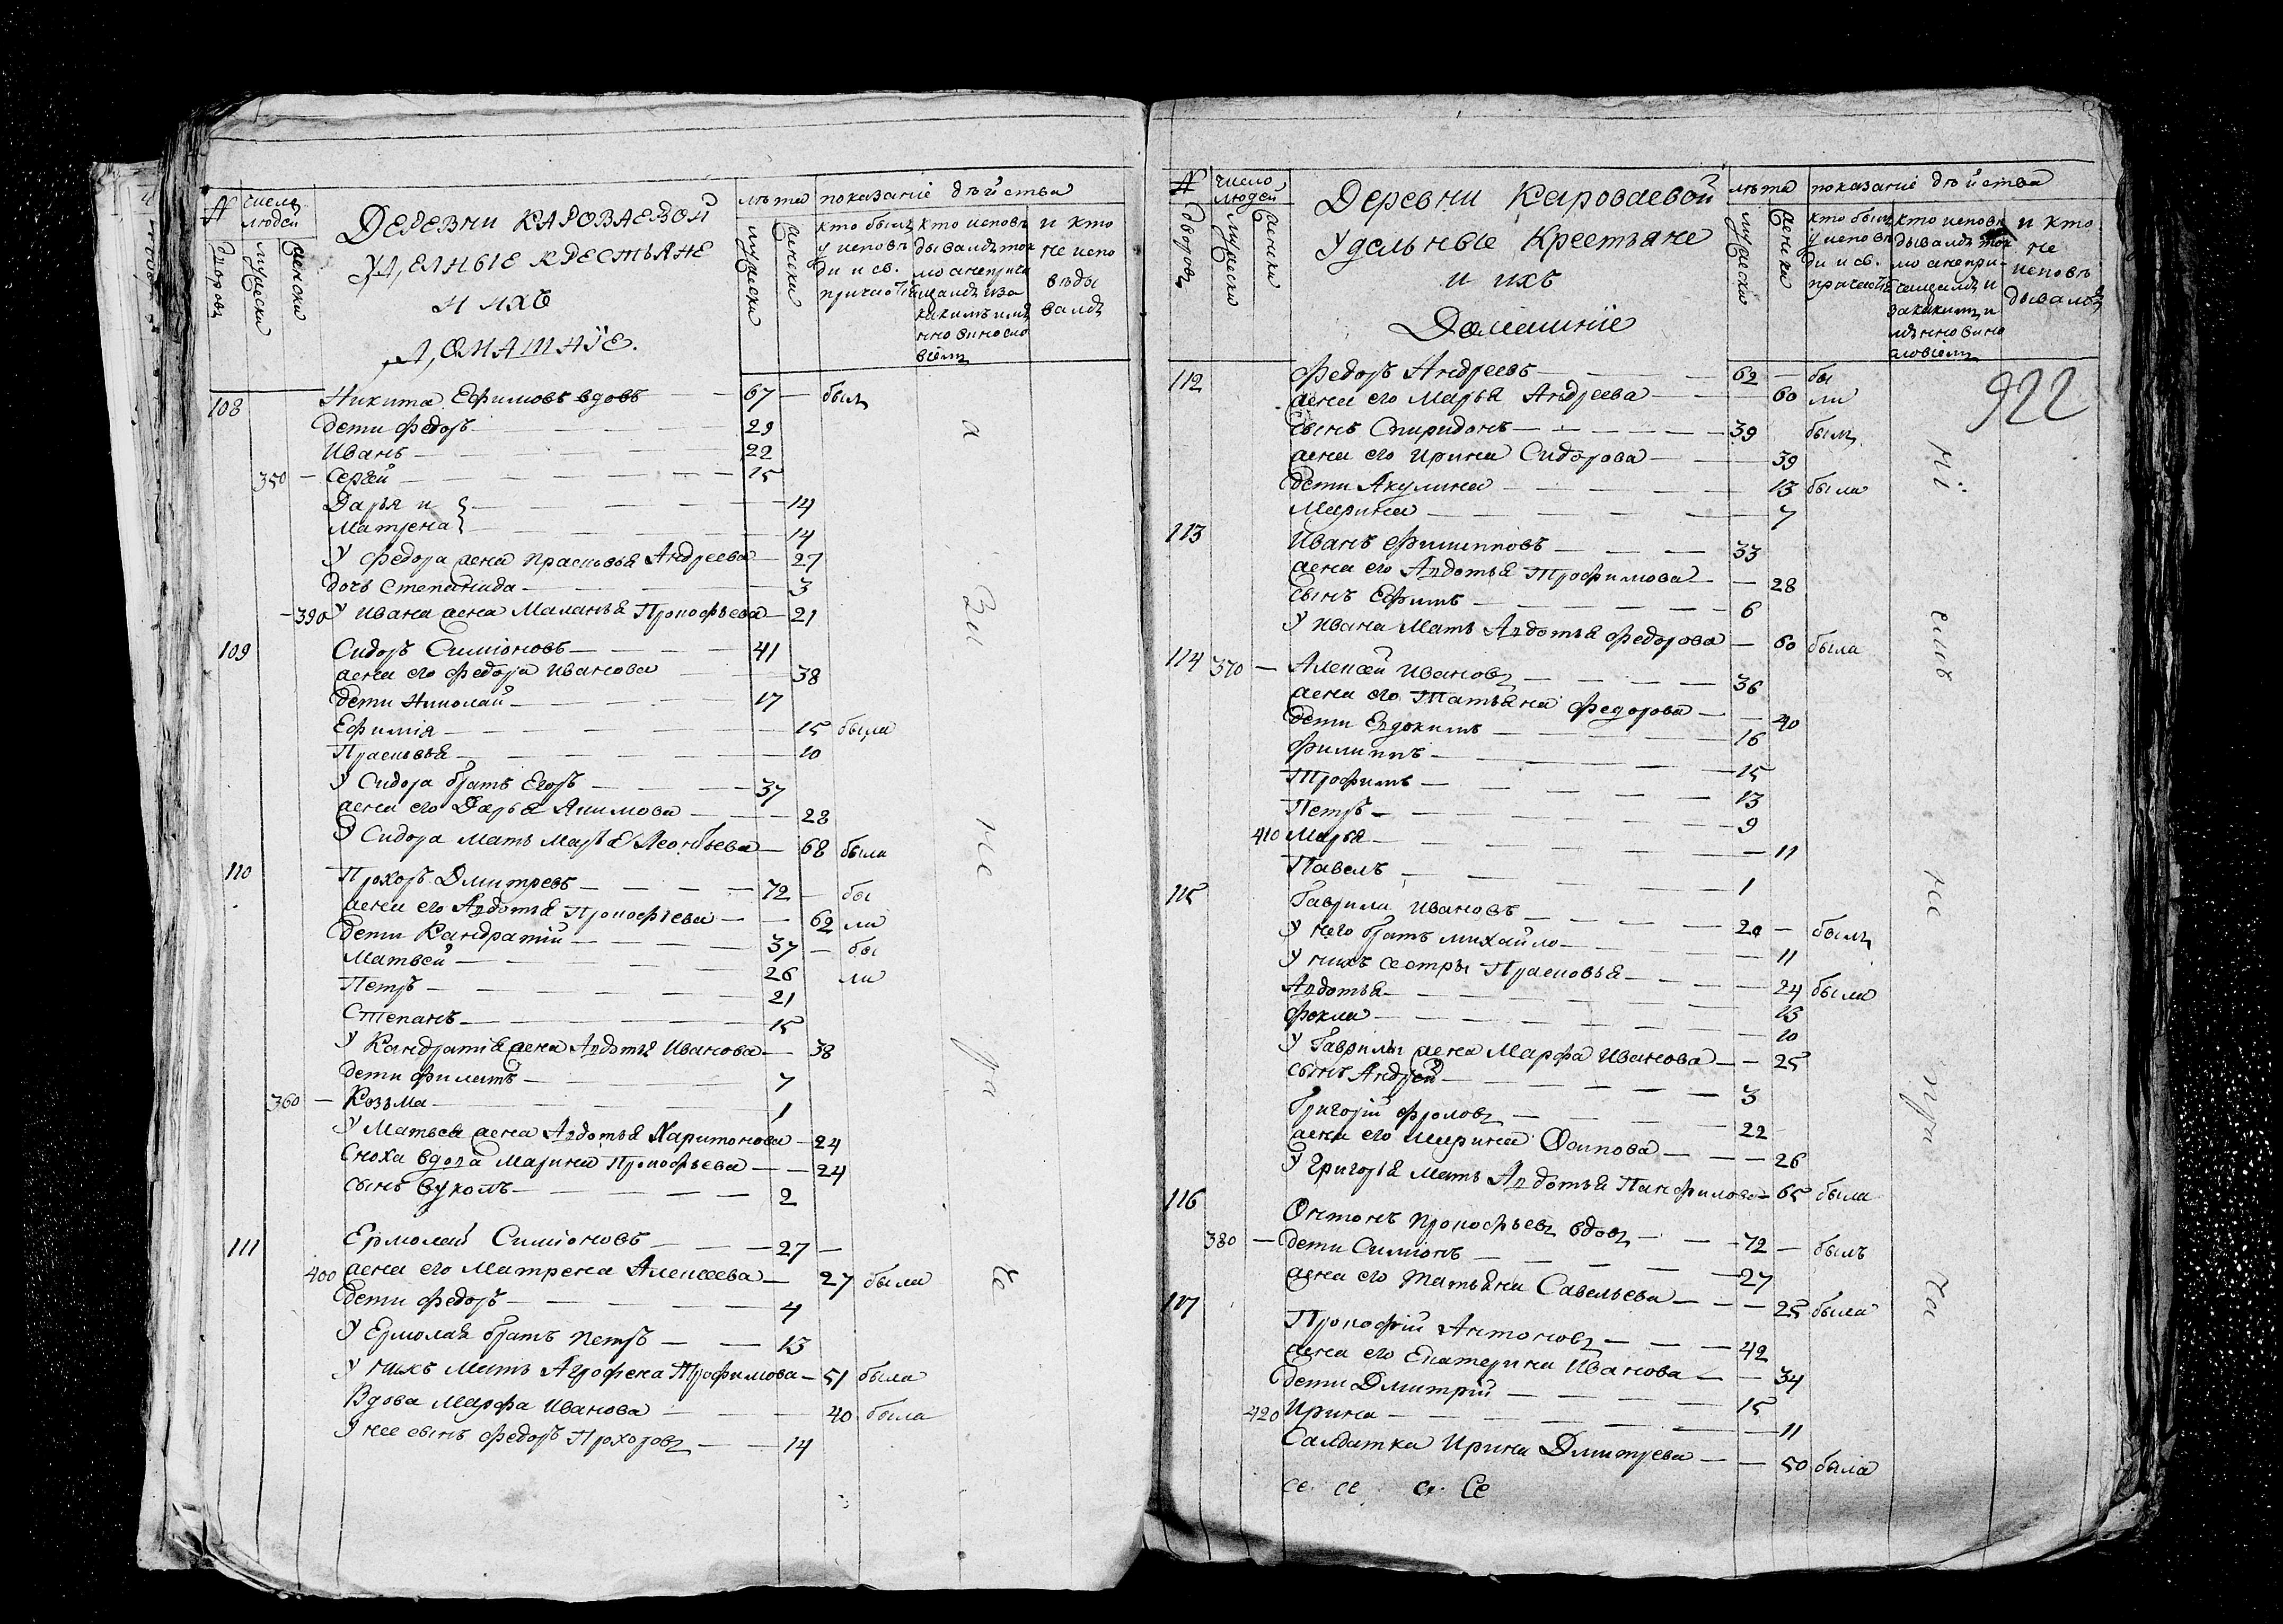 № дворовъ
число людей
мужески
женски
ДЕРЕВНИ КАРОВАЕВОЙ
УДЕЛНЫЕ КРЕСТЬЯНЕ
И ИХЪ
ДОМАШНІЕ.
лѣта
мужески
женски
показаніе дѣйства
кто былъ у исповѣди и св. причастія
кто исповѣдывался токмо а непричащался и за какимъ имянно винословіемъ
и кто не исповѣдывался
108 Никита Ефимовъ вдовъ 67 — былъ
дети Федоръ 29
Иванъ 22
350 — Сергей 15
Дарья и 14
Матрена 14
У Федора жена Прасковья Андреева — 27
дочь Степанида 3
— 390 У Ивана жена Маланья Прокофьева — 21
109 Сидоръ Симіоновъ 41
жена его Федора Иванова 38
дети Николай 17
Ефимія 15 была
Прасковья 10
У Сидора братъ Егоръ 37
жена его Дарья Акимова 28
У Сидора мать Марья Леонтьева — 68 была
110 Прохоръ Дмитревъ 72 — бы
жена его Авдотья Прокофьева 62 ли
дети Кандратій 37 — бы
Матвей 26 ли
Петръ 21
Степанъ 15
У Кандратія жена Авдотья Иванова — 38
дети Филатъ 7
360 — Козьма 1
У Матвея жена Авдотья Харитонова — 24
Сноха вдова Марина Прокофьева — 24
сынъ Вуколъ 2
111 Ермолай Симіоновъ 27 —
400 жена его Матрена Алексеева — 27 была
дети Федоръ 4
У Ермолая братъ Петръ 13
У нихъ мать Агрофена Трофимова — 51 была
Вдова Марфа Иванова 40 была
У нее сынъ Федоръ Прохоровъ 14
а
зи
не
ра
че
№ дворовъ
число людей
мужески
женски
Деревни Короваевой
Удельные Крестьяне
и ихъ
Домашніе
лѣта
мужески
женски
показаніе дѣйства
кто былъ у исповѣди и св. причастія
кто исповѣдывался токмо а непричащался и за какимъ имянно винословіемъ
и кто не исповѣдывался
922
112 Федоръ Андреевъ 62 — бы
жена его Марья Андреева 60 ли
сынъ Спиридонъ 39 былъ
жена его Ирина Сидорова 39
дети Акулина 13 была
Марина 7
113 Иванъ Филипповъ 33
жена его Авдотья Трофимова 28
сынъ Ефимъ 6
У Ивана мать Авдотья Федорова — 60 была
114 370 — Алексей Ивановъ 36
жена его Татьяна Федорова 40
дети Евдокимъ 16
Филиппъ 15
Трофимъ 13
Петръ 9
410 Марья 11
Павелъ 1
115 Гаврила Ивановъ 20 — былъ
У него братъ Михайло 11
У нихъ сестры Прасковья 24 была
Авдотья 13
Фекла 10
У Гаврилы жена Марфа Иванова 25
сынъ Андрей 3
Григорій Фроловъ 22
жена его Марина Осипова 26
У Григорья мать Авдотья Панфилова — 65 была
116 Онтонъ Прокофьевъ вдовъ 72 — былъ
380 — дети Симіонъ 27
жена его Татьяна Савельева 25 была
117 Прокофій Антоновъ 42
жена его Екатерина Иванова 34
дети Дмитрій 15
420 Ирина 11
Салдатка Ирина Дмитрева 50 была